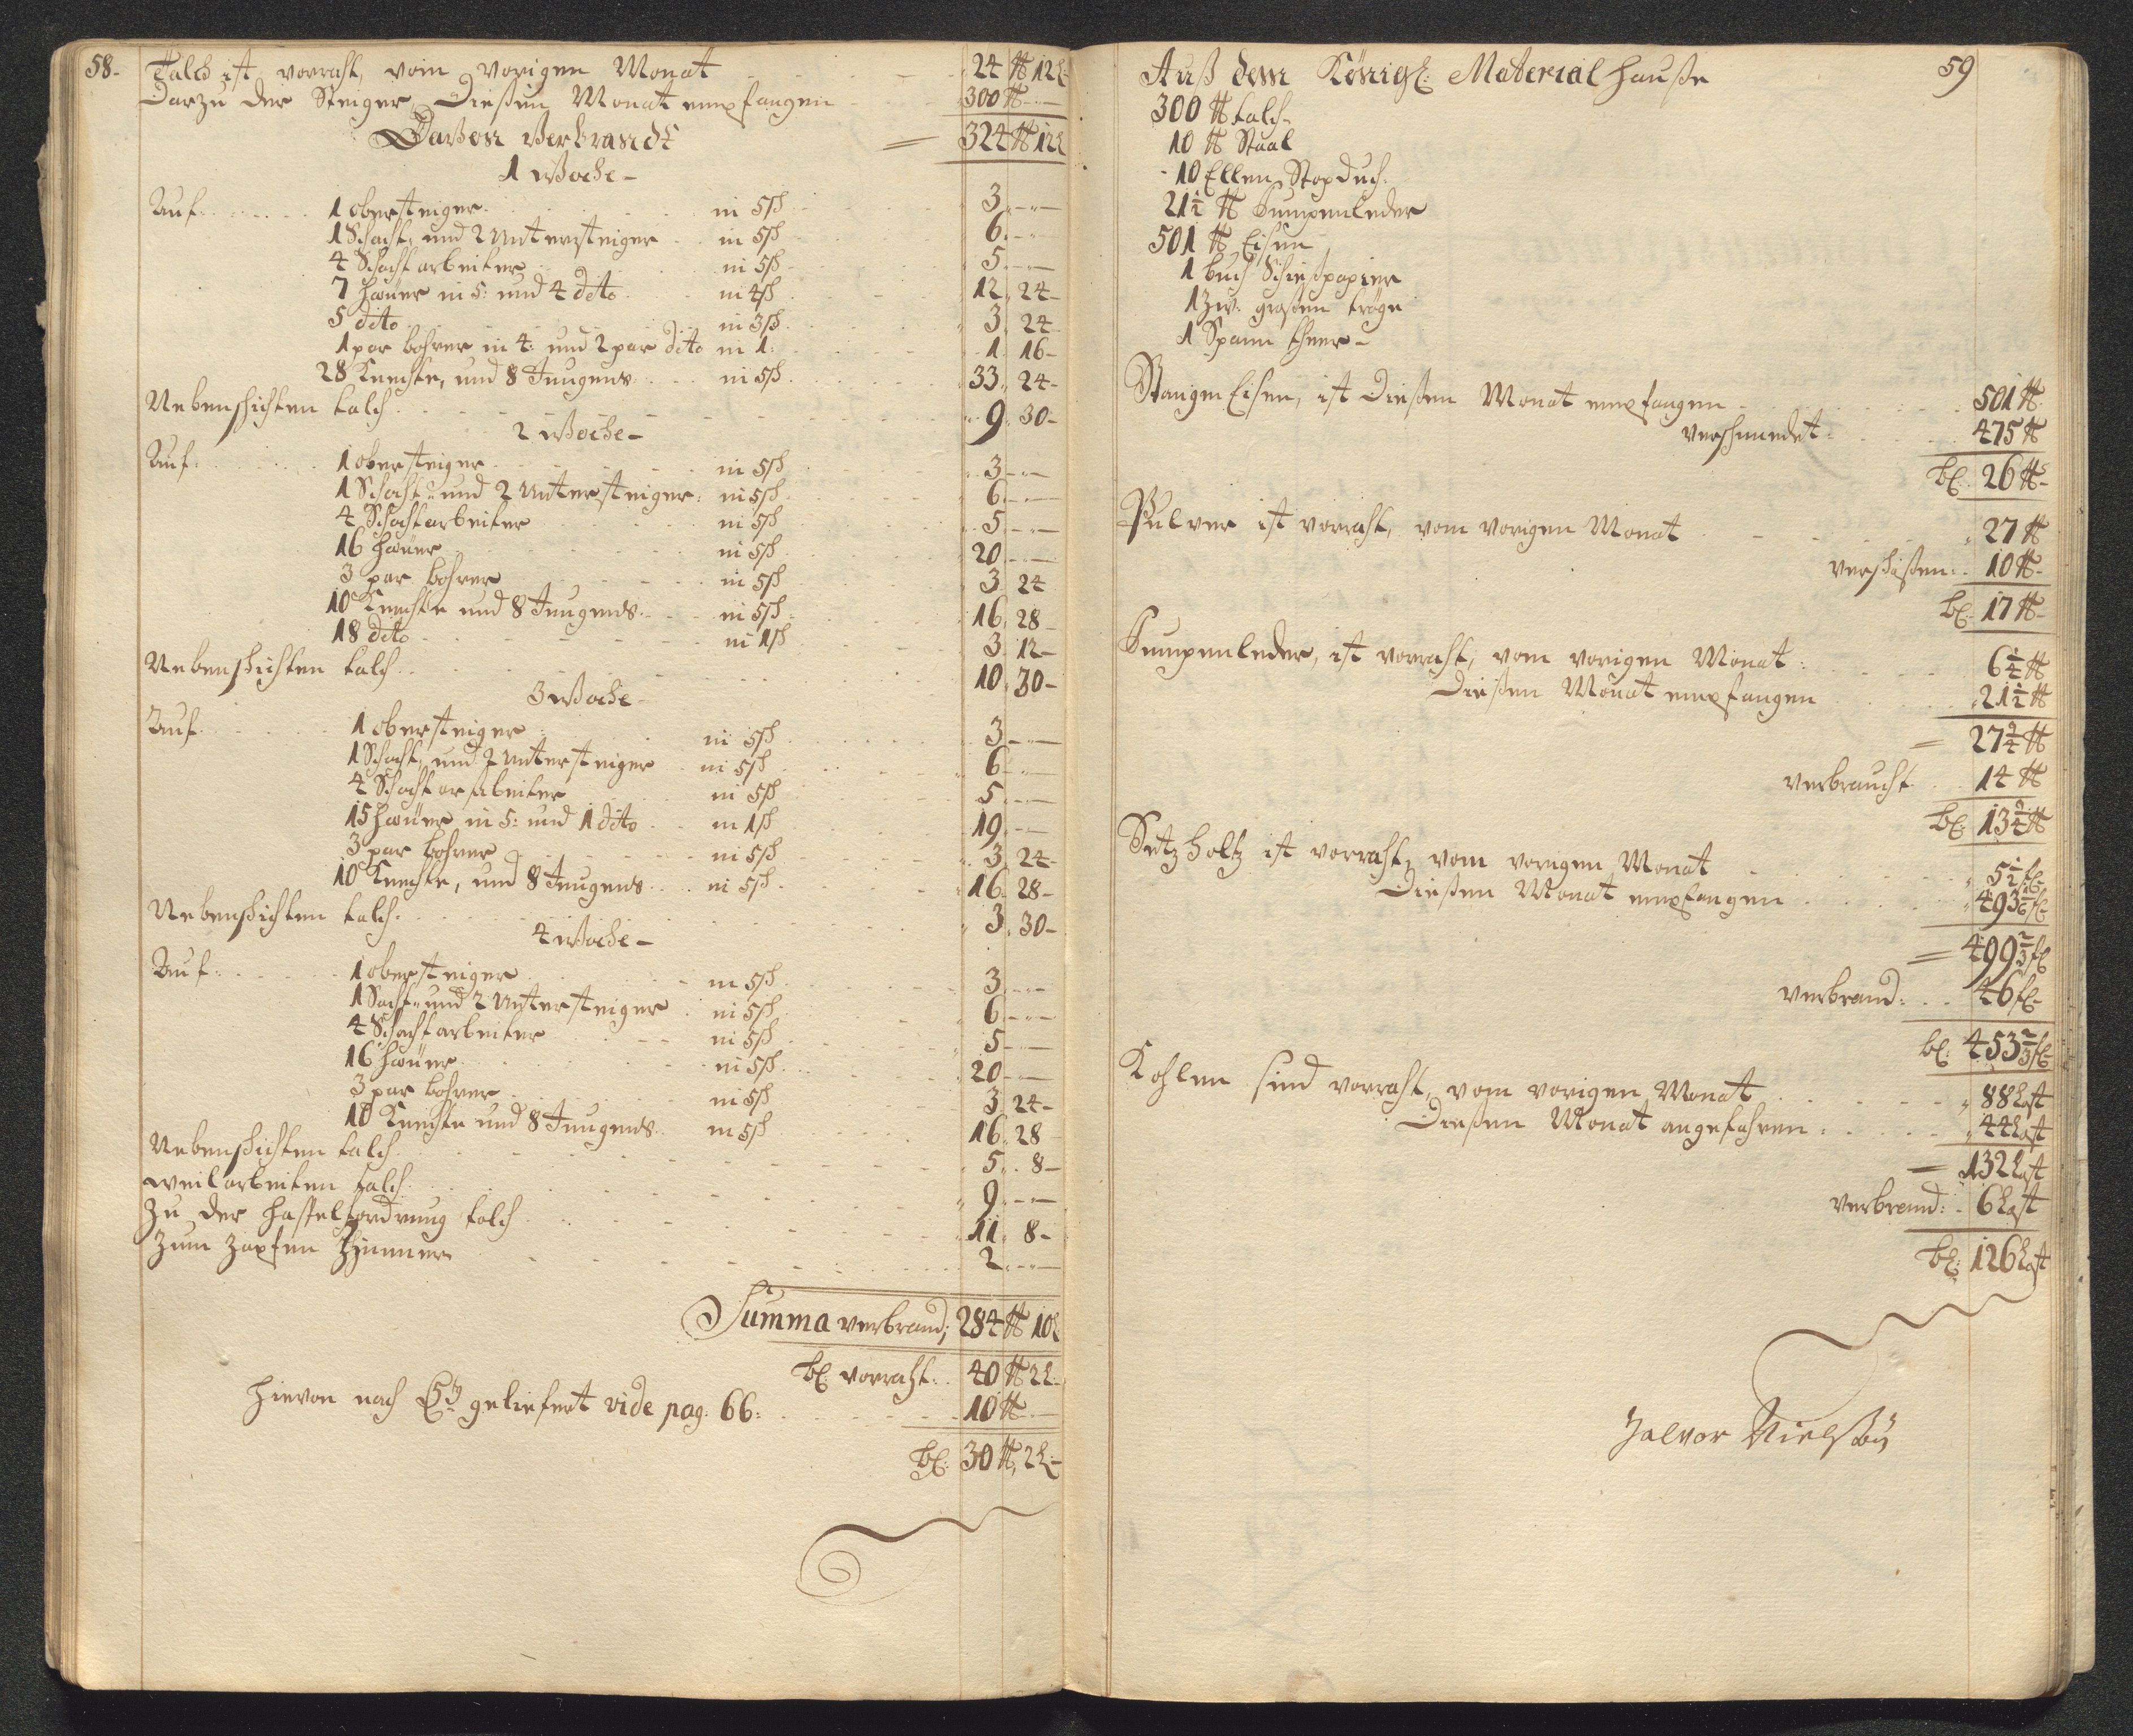 58.
Talch ist vorraht, vom vorigen Monat 24 ℔ 12 L
Darzu der Steiger, Dießen Monat empfangen 300 ℔
Davon Verbrandt = 324 ℔ 12 L
1 Woche
Auf 1 obersteiger in 5ß 3
1 Schacht, und 2 Untersteiger in 5ß 6
4 Schacht arbeiter in 5ß 5
7 häuer in 5: und 4 dito in 4ß 12 24
5 dito in 3ß 3 24
1 par bohrer in 4: und 2 par dito in 1: 1 16
28 Knechte, und 8 Jungens in 5ß 33 24
Nebenschichten talch 9 30
2 Woche
Auf 1 obersteiger in 5ß 3
1 Schacht- und 2 Untersteiger in 5ß 6
4 Schachtarbeiter in 5ß 5
16 häuer in 5ß 20
3 par bohrer in 5ß 3 24
10 Knechte und 8 Jungens in 5ß 16 28
18 dito in 1ß 3 12
Nebenschichten talch 10 30
3 Woche
Auf 1 obersteiger in 5ß 3
1 Schacht, und 2 Untersteiger in 5ß 6
4 Schacht arbeiter in 5ß 5
15 häuer in 5: und 1 dito in 1ß 19
3 par bohrer in 5ß 3 24
10 Knechte, und 8 Jungens in 5ß 16 28
Nebenschichten talch 3 30
4 Woche
Auf 1 obersteiger in 5ß 3
1 Sacht- und 2 Untersteiger in 5ß 6
4 Schachtarbeiter in 5ß 5
16 häuer in 5ß 20
3 par bohrer in 5ß 3 24
10 Knechte und 8 Jungens in 5ß 16 28
Nebenschichten talch 5 8
weilarbeiten talch 9
Zu der haspelfordrung talch 11 8
Zum Zapfen Zimmer 2
Summa verbrand; 284 ℔ 10 L
bl: vorraht 40 ℔ 2 L
hievon nach geliefert vide pag: 66: 10 ℔
bl: 30 ℔, 2 L
59
Auß dem Königl: Material hauße
300 ℔ talch
10 ℔ Staal
10 Ellen Stopduch
21½ ℔ Pumpenleder
501 ℔ Eisen
1 buch Schießpapier
1 Zw: großen tröge
1 Spann theer
Stangen Eisen, ist Dießen Monat empfangen 501 ℔
verschmiedet 475 ℔
bl: 26 ℔
Pulver ist vorraht, vom vorigen Monat 27 ℔
verschoßen 10 ℔
bl: 17 ℔
Pumpenleder, ist vorraht, vom vorigen Monat 6¼ ℔
Dießen Monat empfangen 21½ ℔
= 27¾ ℔
verbraucht 14 ℔
bl: 13¾ ℔
Setzholtz ist vorraht, vom vorigen Monat 5½ fl
Dießen Monat empfangen 493 fl
= 499⅔ fl
verbrand 46 fl
bl: 453⅔ fl
Kohlen sind vorraht, vom vorigen Monat 88 Last
Dießen Monat angefahren 44 Last
= 132 Last
verbrand 6 Last
bl: 126 Last
Halvor Nielßøn